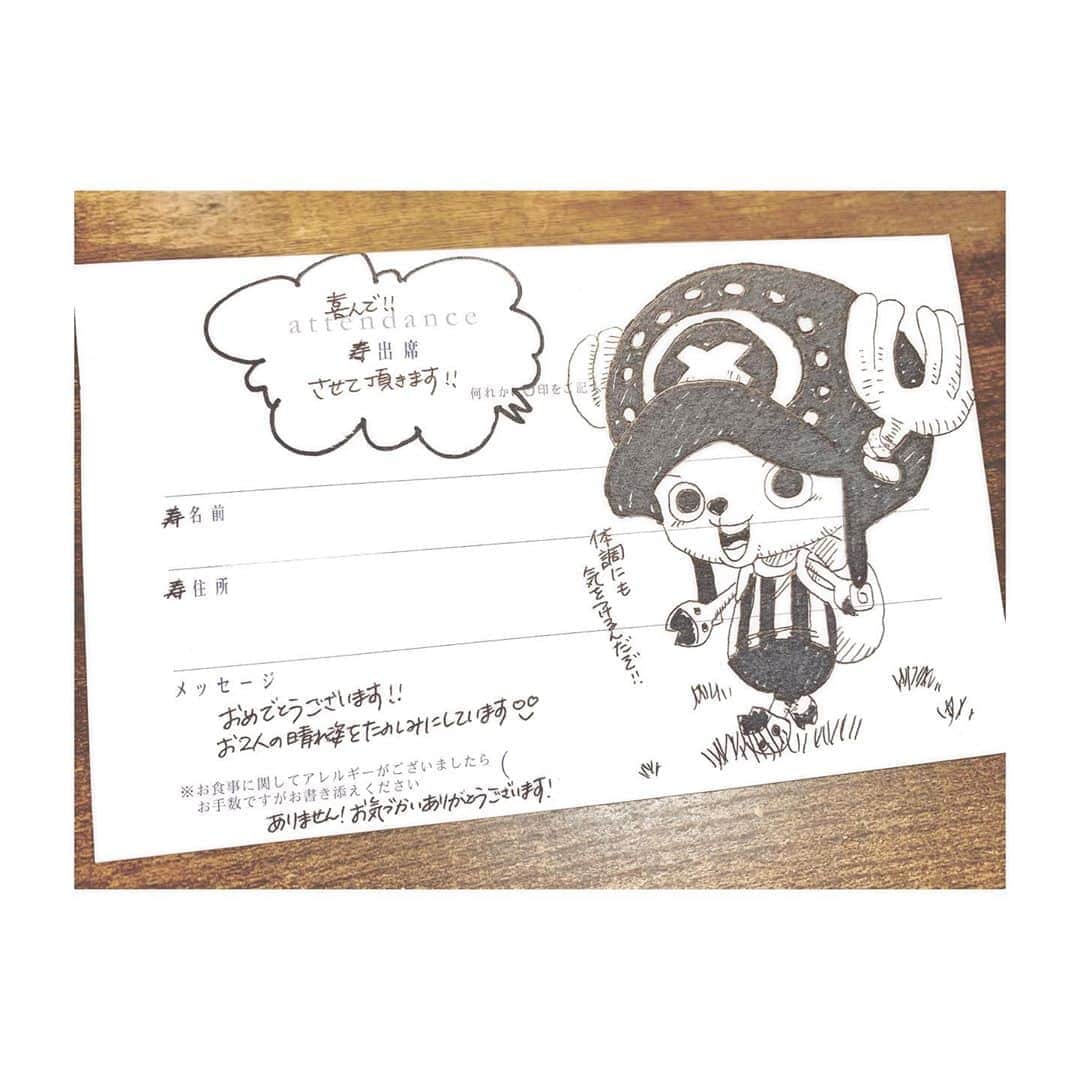 喜んで!!
attendance
寿出席
させて頂きます!!
何れかに○印をご記入
寿名前
寿住所
体調にも
気を守るんだぞ!!
メッセージ
おめでとうございます!!
お2人の晴れ姿をたのしみにしています
※お食事に関してアレルギーがございましたら
お手数ですがお書き添えください
ありません!お気づかいありがとうございます!